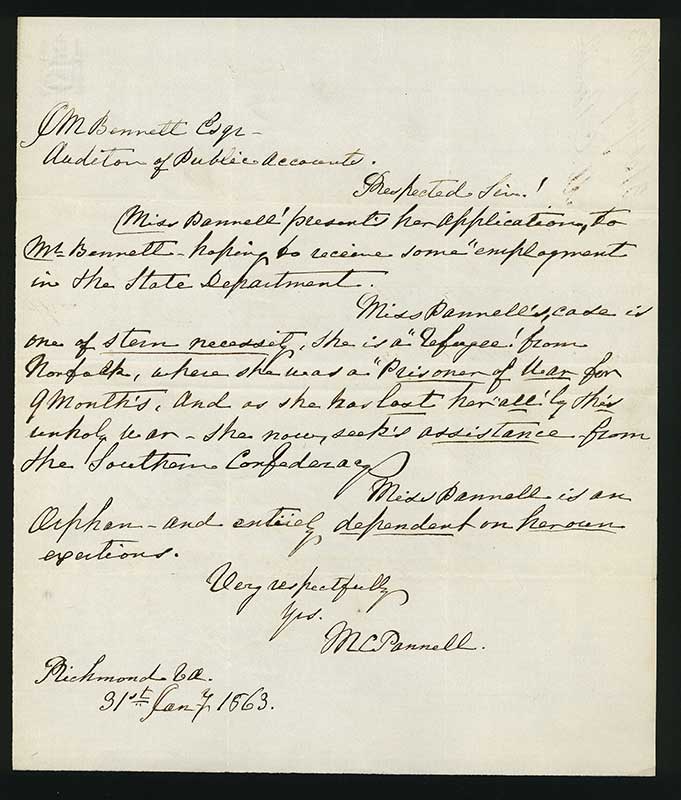 J M Bennett Esqr -
Auditor of Public Accounts.
Respected Sir!
Miss Pannell! presents her application, to
Mr. Bennett - hoping to receive some "employment
in the State Department.
Miss Pannell's, case is
one of stern necessity, she is a "refugee! from
Norfolk, where she was a "Prisoner of War for
9 Month's, And as she has lost her "all" by this
unholy war - she now, seek's assistance from
the Southern Confederacy
Miss Pannell is an
Orphan - and entirely dependent on her own
exertions.
Very respectfully
Yrs.
M C Pannell.
Richmond Va.
31st Jany 1863.